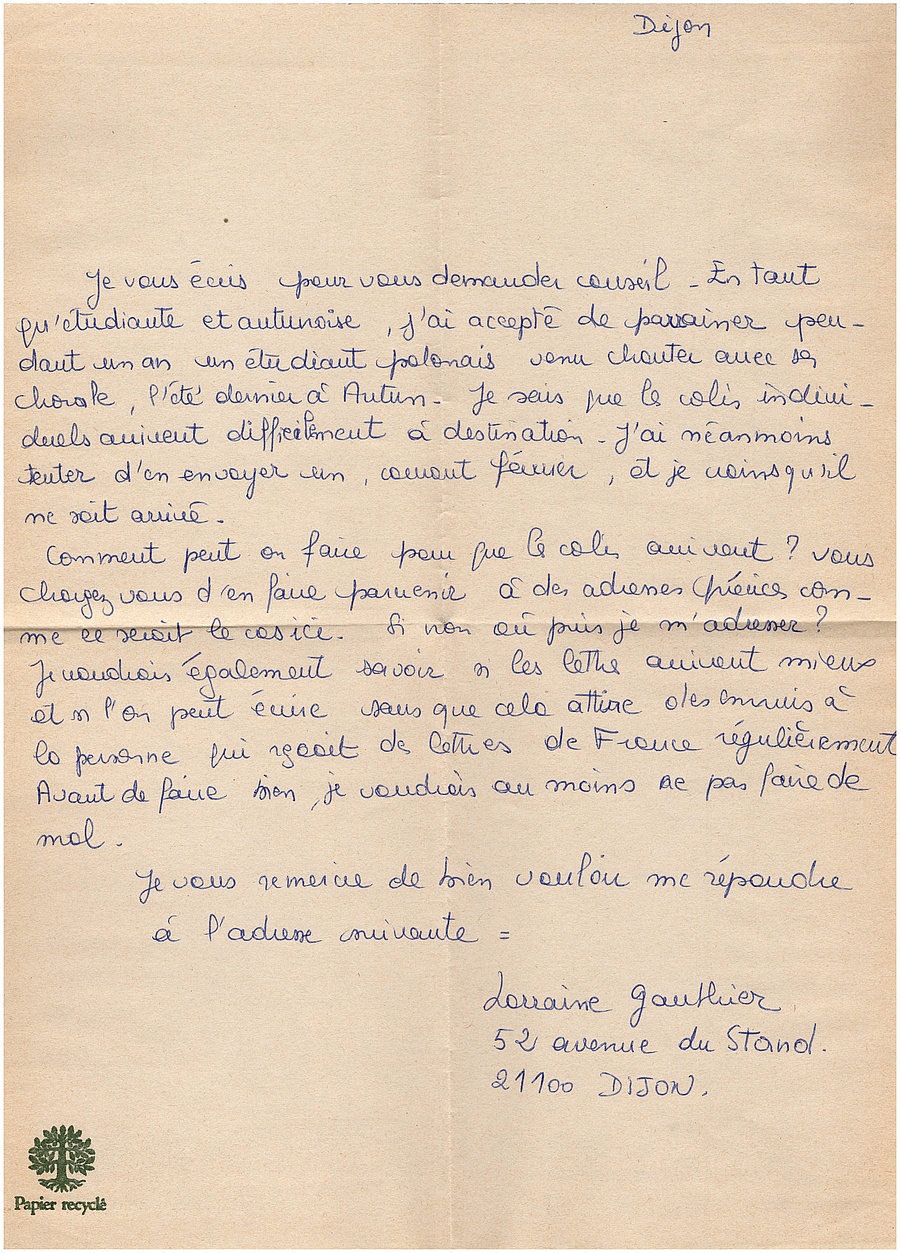 Dijon
Je vous écris pour vous demander conseil - En tant
qu'étudiante et autunoise, j'ai accepté de parrainer pen-
dant un an un étudiant polonais venu chanter avec sa
chorale, l'été dernier à Autun. Je sais que le colis indivi-
duels arrivent difficilement à destination. J'ai néanmoins
tenter d'en envoyer un, courant février, et je crains qu'il
ne soit arrivé.
Comment peut on faire pour que le colis arrivent ? vous
chargez vous d'en faire parvenir à des adresses précises com-
me ce serait le cas ici. Si non où puis je m'adresser ?
Je voudrais également savoir si les lettre arrivent mieux
et si l'on peut écrire sans que cela attire des ennuis à
la personne qui reçoit des lettres de France régulièrement
Avant de faire bien, je voudrais au moins ne pas faire de
mal.
Je vous remercie de bien vouloir me répondre
à l'adresse suivante =
Lorraine Gauthier.
52 avenue du Stand.
21100 DIJON.
Papier recyclé